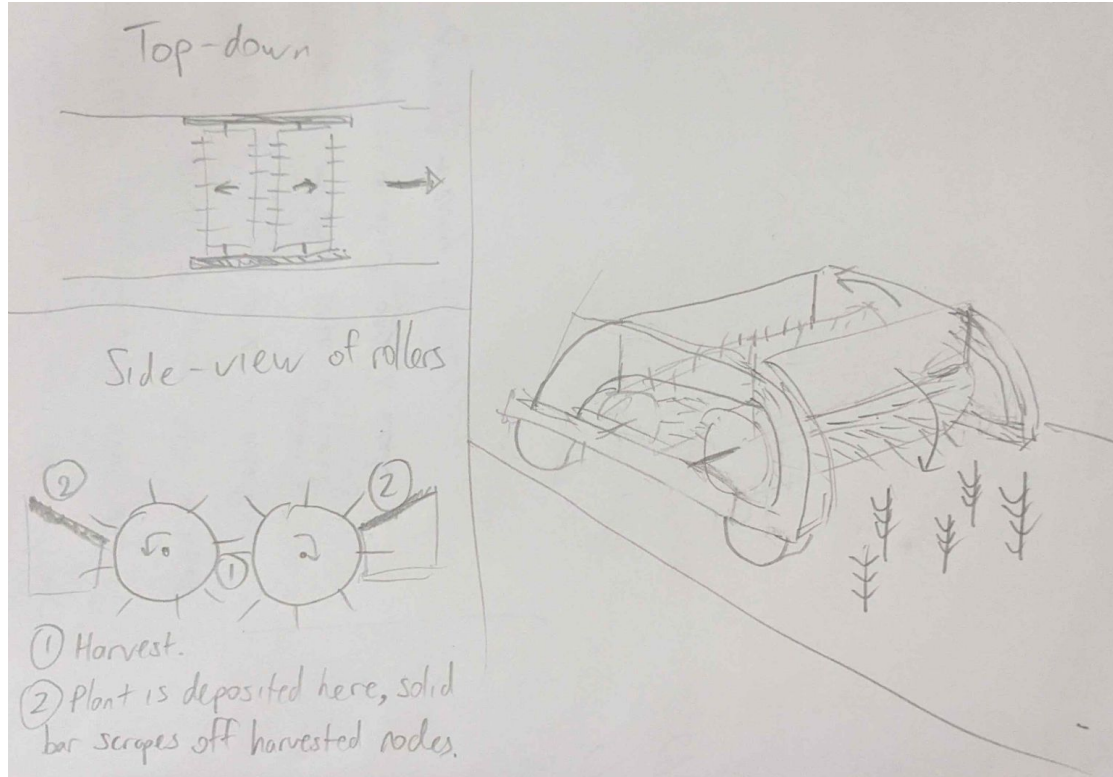 Top-down
Side-view of rollers
2
2
1
1 Harvest.
2 Plant is deposited here, solid
bar scrapes off harvested nodes.